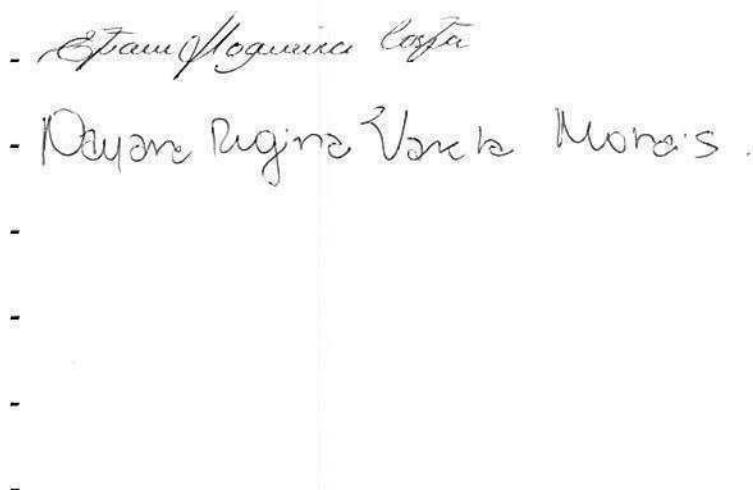 - Efani Nogueira Costa
- Dayane Regina Varela Morais.
-
-
-
-